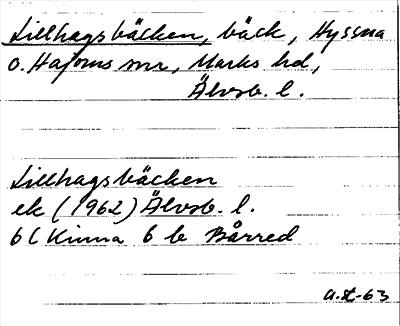 Lillhagsbäcken, bäck, Hyssna
o. Hajoms snr, Marks hd,
Älvsb. l.
Lillhagsbäcken
ek (1962) Älvsb. l.
6C Kinna 6 b Bårred
a.t-63